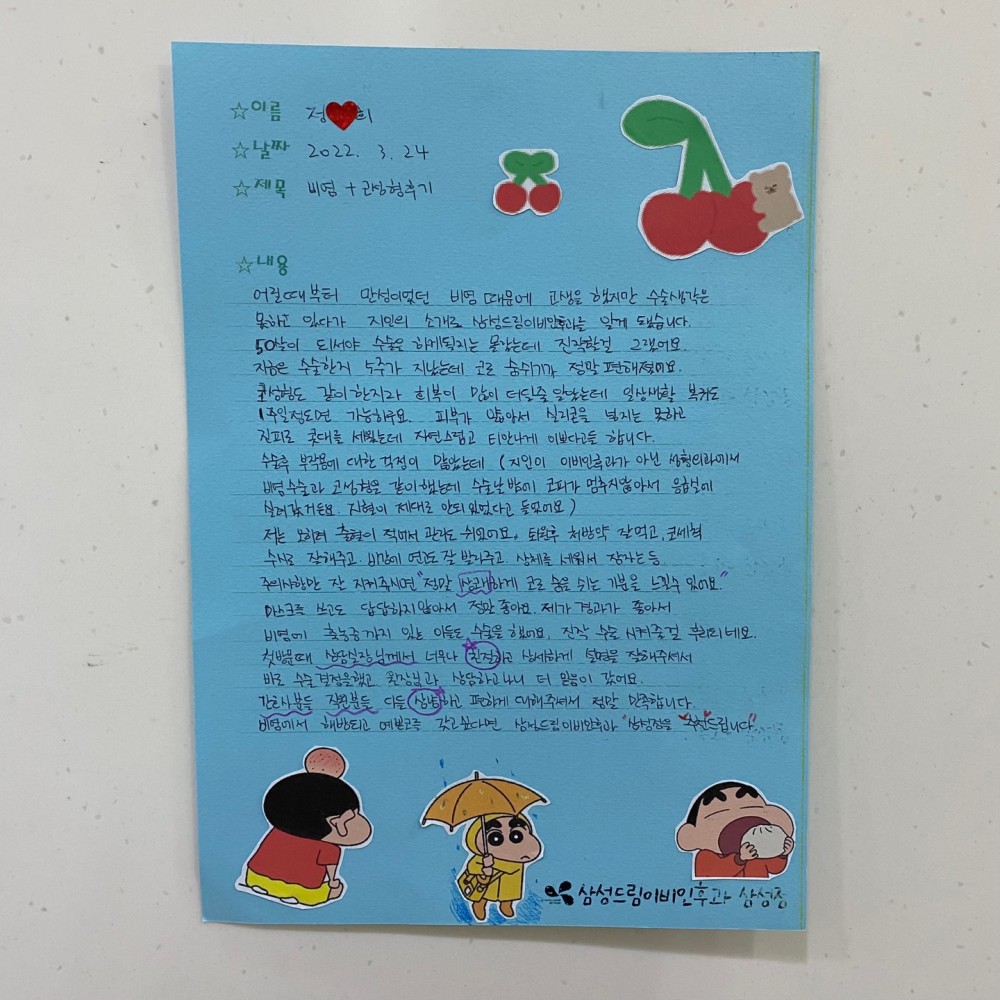 ☆이름 정❤희
☆날짜 2022. 3. 24
☆제목 비염 + 코성형후기
☆내용
어릴때부터 만성이었던 비염 때문에 고생을 했지만 수술생각은
못하고 있다가 지인의 소개로 삼성드림이비인후과를 알게 됐습니다.
50살이 되서야 수술을 하게될지는 몰랐는데 진작할걸 그랬어요
지금은 수술한지 4주가 지났는데 코로 숨쉬기가 정말 편해졌어요.
코성형도 같이 한지라 회복이 많이 더딜줄 알았는데 일상생활 복귀도
1주일정도면 가능하구요. 피부가 얇아서 실리콘을 넣지는 못하고
진피로 콧대를 세웠는데 자연스럽고 티안나게 이쁘다고들 합니다.
수술후 부작용에 대한 걱정이 많았는데 (지인이 이비인후과가 아닌 성형외과에서
비염수술과 코성형을 같이했는데 수술날밤에 코피가 멈추지않아서 응급실에
실려갔거든요. 지혈이 제대로 안되있었다고 들었어요)
저는 오히려 출혈이 적어서 관리도 쉬웠어요. 퇴원후 처방약 잘 먹고, 코세척
수시로 잘해주고. 비강에 연고도 잘 발라주고. 상체를 세워서 잠자는 등
주의사항만 잘 지켜주시면 "정말 상쾌하게 코로 숨을 쉬는 기분을 느낄수 있어요."
마스크를 쓰고도 답답하지않아서 정말 좋아요. 제가 결과가 좋아서
비염에 축농증까지 있는 아들도 수술을 했어요. 진작 수술 시켜줄걸 후회되네요.
첫방문때 상담실장님께서 너무나 친절하고 상세하게 설명을 잘해주셔서
바로 수술결정을했고 원장님과 상담하고나니 더 믿음이 갔어요.
간호사분들 직원분들 다들 상냥하고 편하게 대해주셔서 정말 만족합니다
비염에서 해방되고 예쁜코를 갖고싶다면 삼성드림이비인후과 "삼성점을 추천드립니다"
삼성드림이비인후과 삼성점